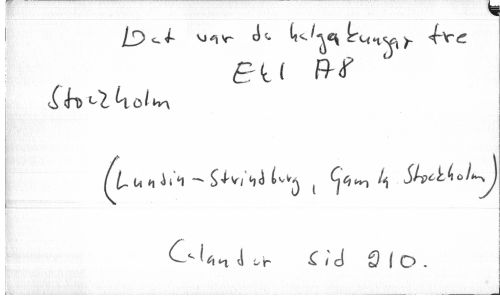 Det var de helga kungar tre
Ek1 A8
Stockholm
(Lundin-Strindberg, Gamla Stockholm)
Celander sid 210.